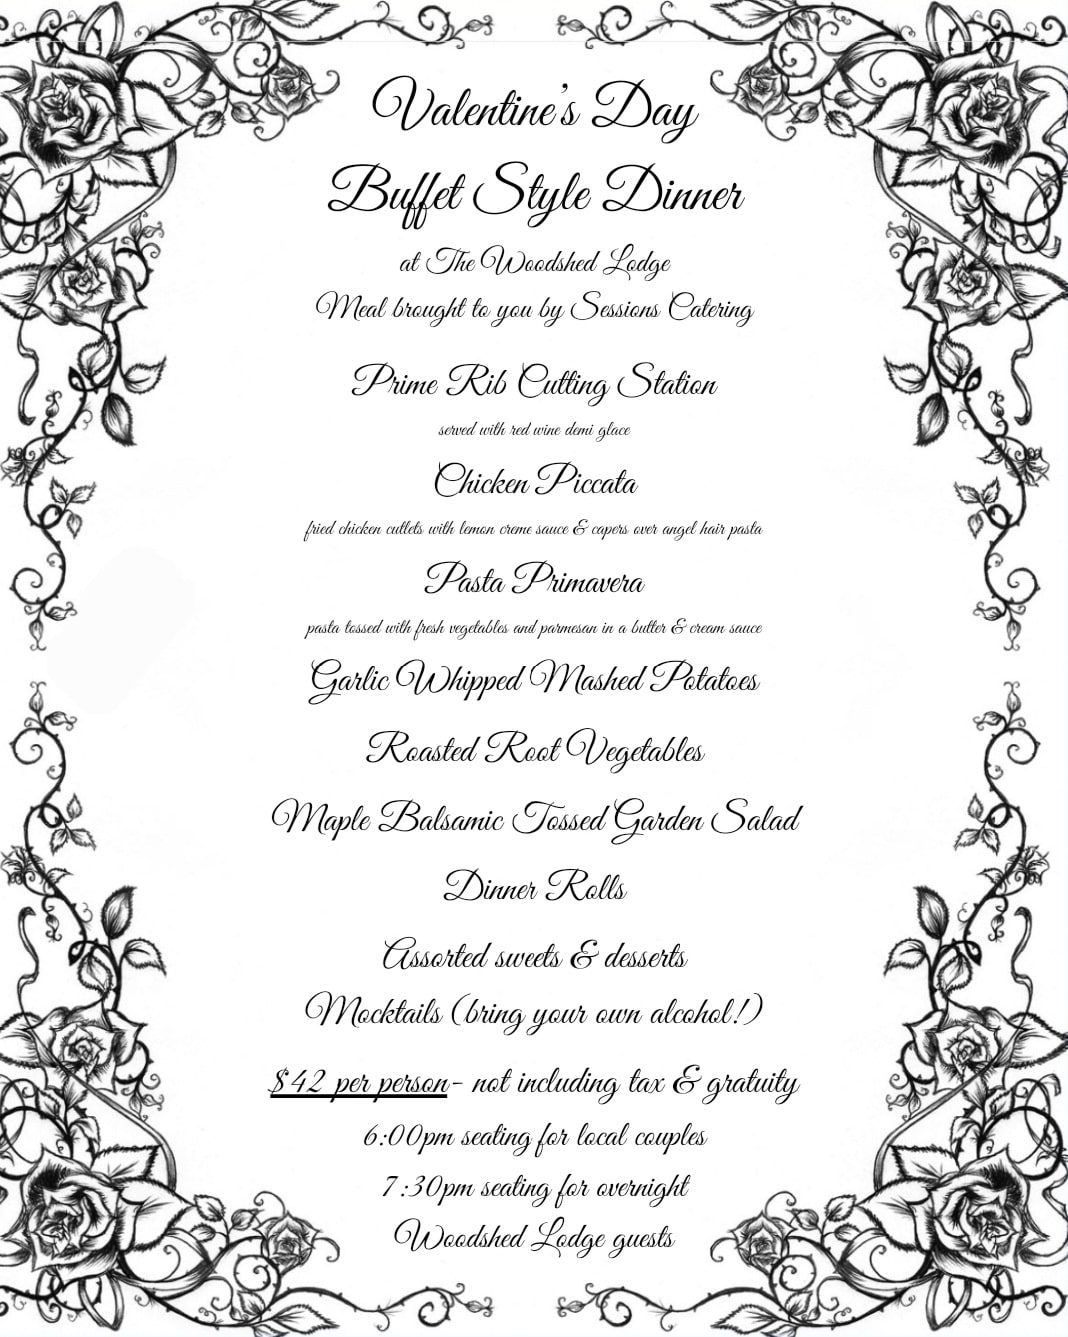 Valentine's Day
Buffet Style Dinner
at The Woodshed Lodge
Meal brought to you by Sessions Catering
Prime Rib Cutting Station
served with red wine demi glace
Chicken Piccata
fried chicken cutlets with lemon creme sauce & capers over angel hair pasta
Pasta Primavera
pasta tossed with fresh vegetables and parmesan in a butter & cream sauce
Garlic Whipped Mashed Potatoes
Roasted Root Vegetables
Maple Balsamic Tossed Garden Salad
Dinner Rolls
Assorted sweets & desserts
Mocktails (bring your own alcohol!)
$42 per person- not including tax & gratuity
6:00pm seating for local couples
7:30pm seating for overnight
Woodshed Lodge guests